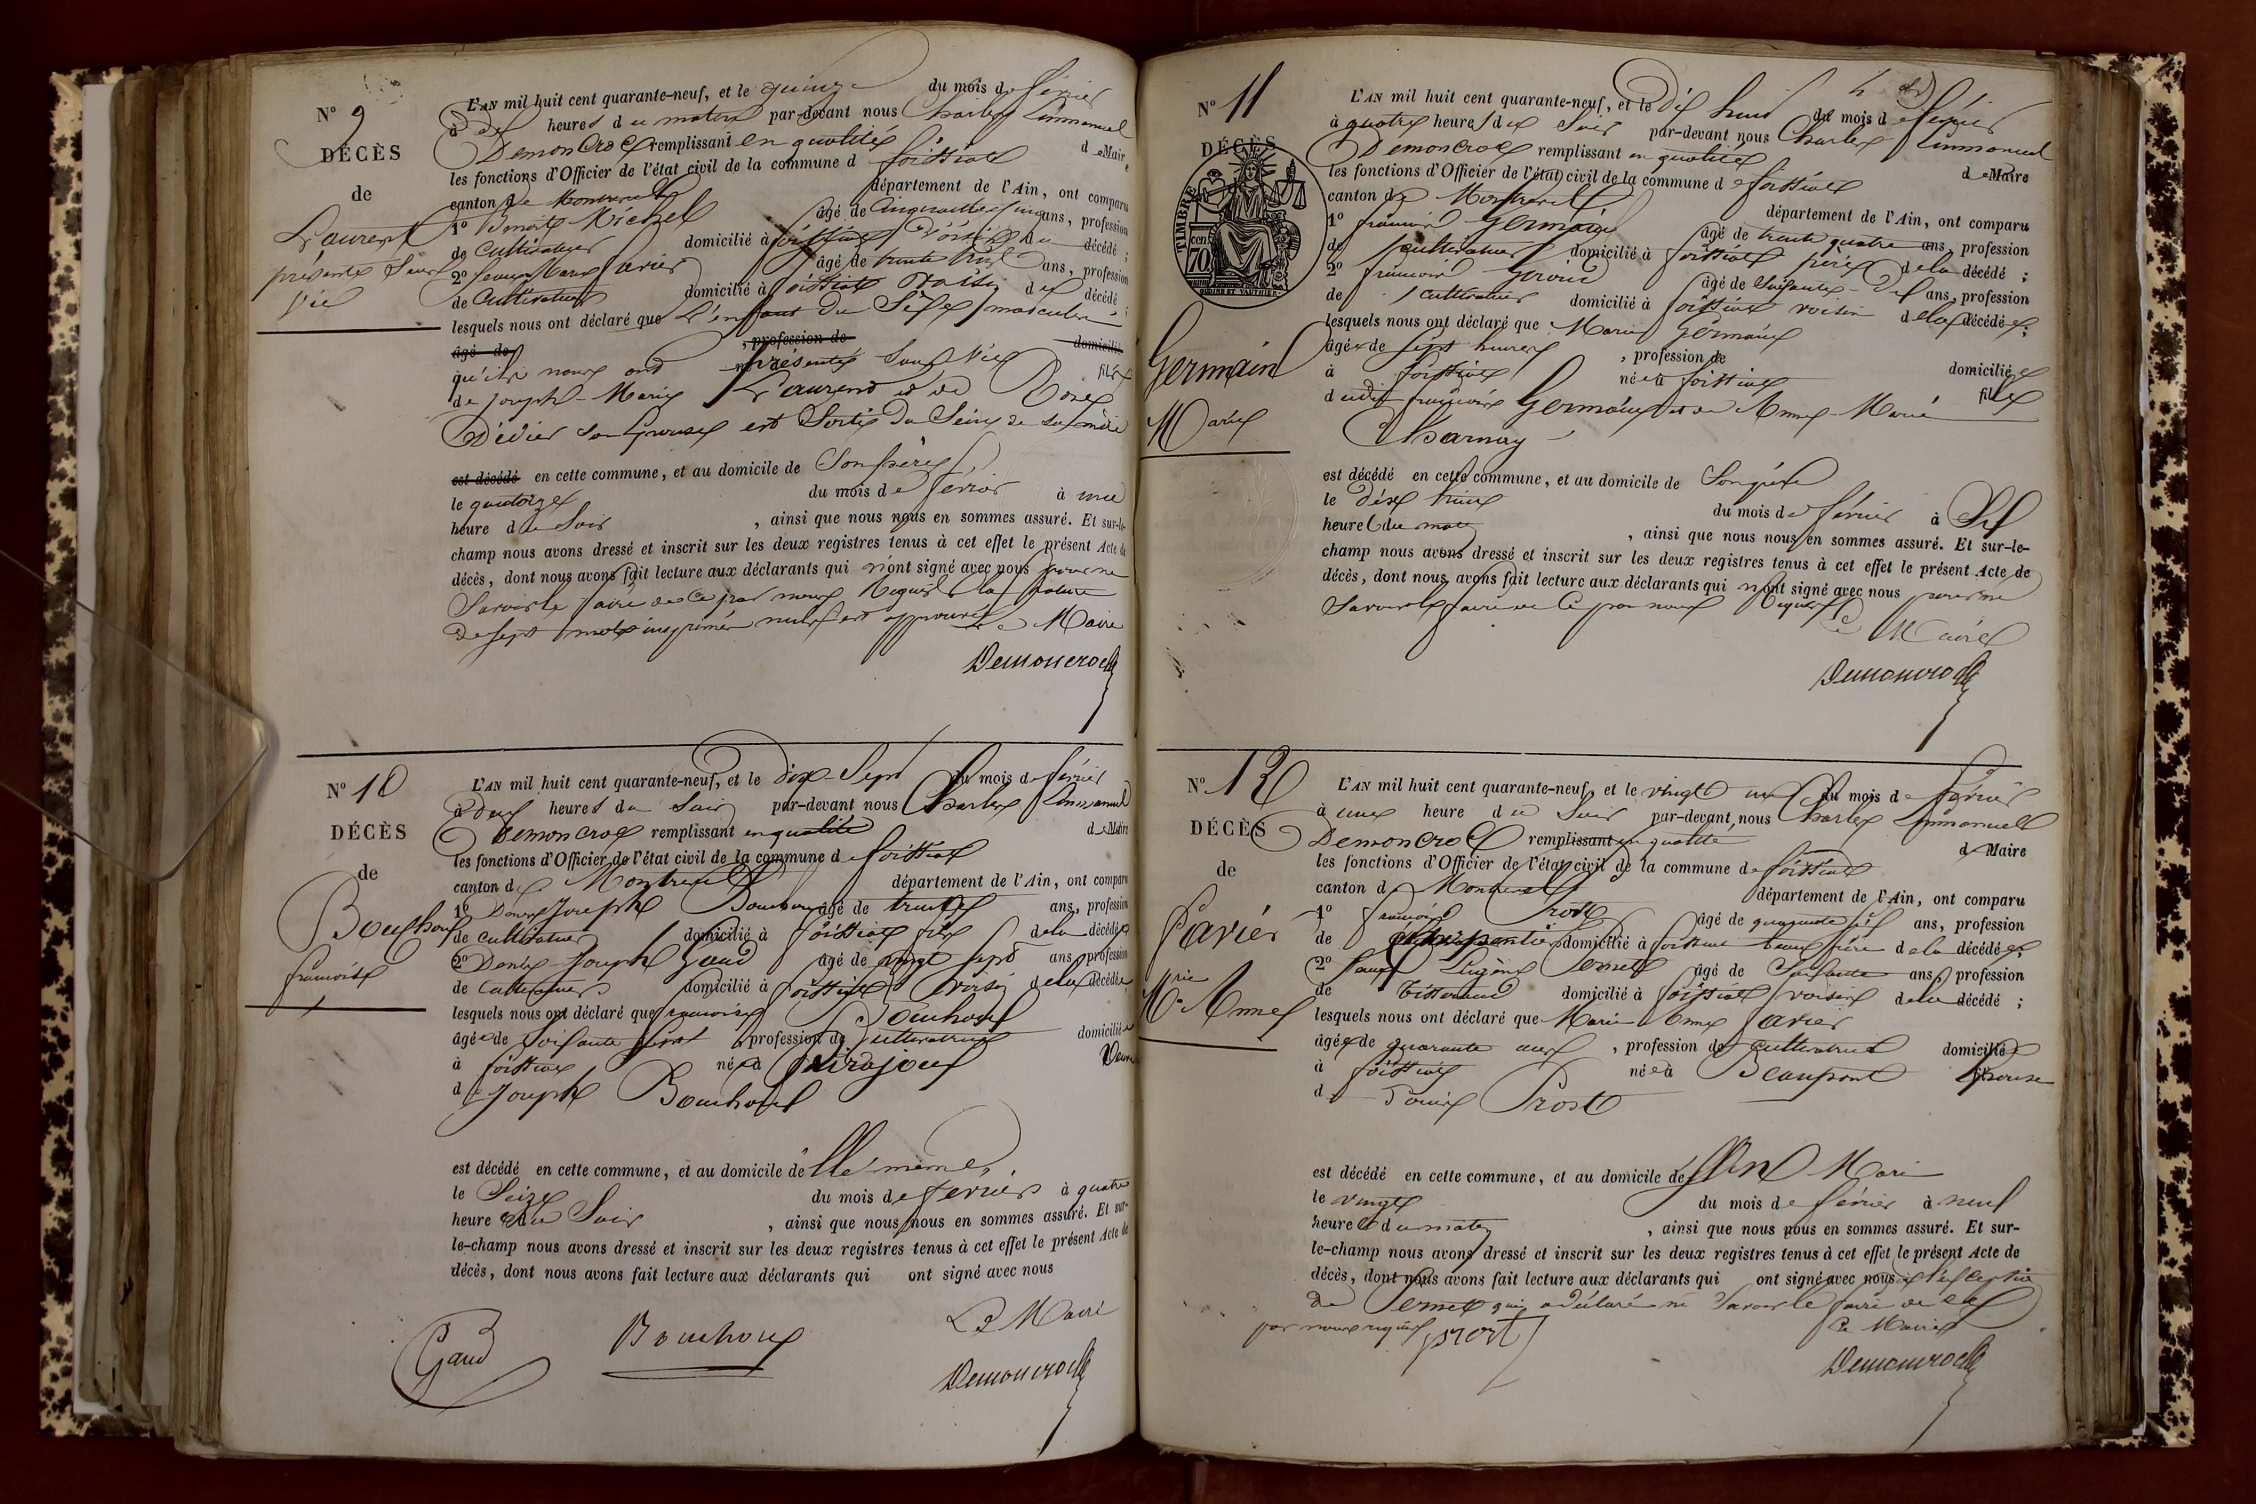 N° 9
DÉCÈS
de
Laurent
présenté sans
vie
L'AN mil huit cent quarante-neuf, et le quinze du mois de février
à dix heures du matin par-devant nous Charles Emmanuel
Demoncroc remplissant en qualité de Maire
les fonctions d'Officier de l'état civil de la commune de foissiat
canton de Montrevel département de l'Ain, ont comparu
1° Benoit Michel âgé de Cinquante ans, profession
de Cultivateur domicilié à foissiat voisin du décédé ;
2° Marie favier âgé de trente huit ans, profession
de Cultivateur domicilié à foissiat voisin du décédé ;
lesquels nous ont déclaré que L'enfant du Sexe masculin
âgé de , profession de domicilié
qu'ils nous ont présenté Sans Vie fils
de joseph-Marie Laurent et de Rose
Dévier son épouse est Sorti du Sein de sa mère
est décédé en cette commune, et au domicile de Son père
le quatorze du mois de février à une
heure du Soir , ainsi que nous nous en sommes assuré. Et sur-le-
champ nous avons dressé et inscrit sur les deux registres tenus à cet effet le présent Acte de
décès, dont nous avons fait lecture aux déclarants qui n'ont signé avec nous pour ne
Savoir le faire de ce par nous Requis la rature
de sept mots imprimés nuls est approuvée Le Maire
Demoncroc
N° 10
DÉCÈS
de
Bouchoux
françoise
L'AN mil huit cent quarante-neuf, et le dix-Sept du mois de février
à deux heures du Soir par-devant nous Charles Emmanuel
Demoncroc remplissant en qualité de Maire
les fonctions d'Officier de l'état civil de la commune de foissiat
canton de Montrevel département de l'Ain, ont comparu
1° Denis Joseph Bouchoux âgé de trente ans, profession
de Cultivateur domicilié à foissiat fils de la décédée
2° Denis-Joseph Gaud âgé de vingt-sept ans, profession
de Cultivateur domicilié à foissiat voisin de la décédée
lesquels nous ont déclaré que françoise Bouchoux
âgée de Soixante sept profession de Cultivatrice domiciliée
à foissiat née à Veuve
de Joseph Bouchoux
est décédé en cette commune, et au domicile d'elle même,
le Seize du mois de février à quatre
heure du Soir , ainsi que nous nous en sommes assuré. Et sur-
le-champ nous avons dressé et inscrit sur les deux registres tenus à cet effet le présent Acte de
décès, dont nous avons fait lecture aux déclarants qui ont signé avec nous
Le Maire
Gaud Bouchoux
Demoncroc
4
N° 11
DÉCÈS
TIMBRE
cen.
70
Germain
Marie
L'AN mil huit cent quarante-neuf, et le Dix huit du mois de février
à quatre heures du Soir par-devant nous Charles Emmanuel
Demoncroc remplissant en qualité de Maire
les fonctions d'Officier de l'état civil de la commune de foissiat
canton de Montrevel département de l'Ain, ont comparu
1° françois Germain âgé de trente quatre ans, profession
de cultivateur domicilié à foissiat père de la décédé ;
2° françois âgé de Soixante-dix ans, profession
de cultivateur domicilié à foissiat voisin de la décédée ;
lesquels nous ont déclaré que Marie Germain
âgée de sept heures , profession de domiciliée
à foissiat née à foissiat fille
dudit françois Germain et de Anne-Marie
Charnay
est décédé en cette commune, et au domicile de Son père
le dix huit du mois de février à Six
heures du matin , ainsi que nous nous en sommes assuré. Et sur-le-
champ nous avons dressé et inscrit sur les deux registres tenus à cet effet le présent Acte de
décès, dont nous avons fait lecture aux déclarants qui n'ont signé avec nous pour ne
Savoir le faire de ce par nous Requis Le Maire
Demoncroc
N° 12
DÉCÈS
de
favier
Mrie Anne
L'AN mil huit cent quarante-neuf, et le vingt un du mois de février
à une heure du Soir par-devant nous Charles Emmanuel
Demoncroc remplissant en qualité de Maire
les fonctions d'Officier de l'état civil de la commune de foissiat
canton de Montrevel département de l'Ain, ont comparu
1° françois Prost âgé de quarante six ans, profession
de charpentier domicilié à foissiat beau frère de la décédée ;
2° Eugène Pernet âgé de Soixante ans, profession
de Tisserand domicilié à foissiat voisin de la décédé ;
lesquels nous ont déclaré que Marie Anne favier
âgée de quarante ans , profession de Cultivatrice domiciliée
à foissiat née à Beaupont Epouse
de Louis Prost
est décédé en cette commune, et au domicile de Son Mari
le vingt du mois de février à neuf
heures du matin , ainsi que nous nous en sommes assuré. Et sur-
le-champ nous avons dressé et inscrit sur les deux registres tenus à cet effet le présent Acte de
décès, dont nous avons fait lecture aux déclarants qui ont signé avec nous à l'exception
de Pernet qui a déclaré ne Savoir le faire de ce
par nous requis prost Le Maire
Demoncroc